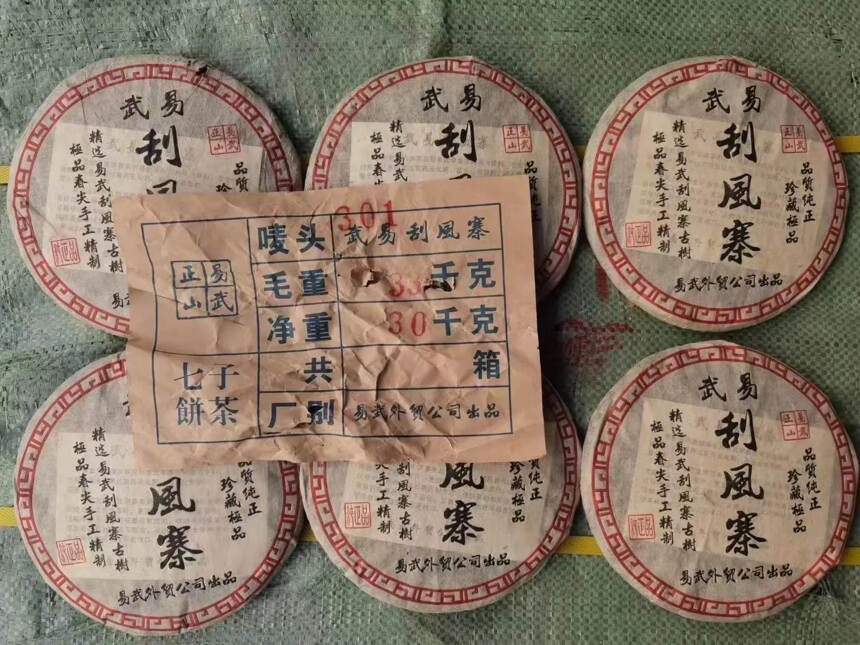 武易
刮風
易武正山
精选易武刮風寨古樹
極品春尖手工精制
易武
武易
刮風
易武正山
精选易武
品質純正
珍藏極品
武易
刮風寨
易武正山
品質純正
珍藏極品
精选易武刮風寨古樹
極品春尖手工精制
易武外贸公司出品
301
唛头 武易刮風寨
易武正山
毛重 33千克
净重 30千克
七子餅茶
共 箱
厂别 易武外贸公司出品
風寨
品質純正
珍藏極品
精选易武刮風寨古樹
極品春尖手工精制
易武外贸公司出品
風寨
珍藏極品
刮風寨古樹
春尖手工精制
易武外贸公司出品
武易
刮風寨
易武正山
品質純正
珍藏極品
精选易武刮風寨古樹
極品春尖手工精制
易武外贸公司出品